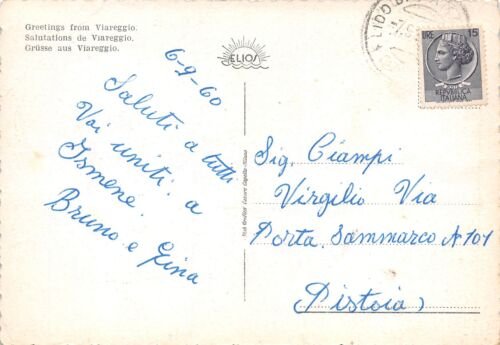 Greetings from Viareggio.
Salutations de Viareggio.
Grüsse aus Viareggio.
ELIOS
6-9-60
Saluti a tutti
Voi uniti a
Ismene.
Bruno e Gina
LIDO D
LIRE 15
REPVBBLICA
ITALIANA
Sig. Ciampi
Virgilio Via
Porta Sammarco N 101
(Pistoia)